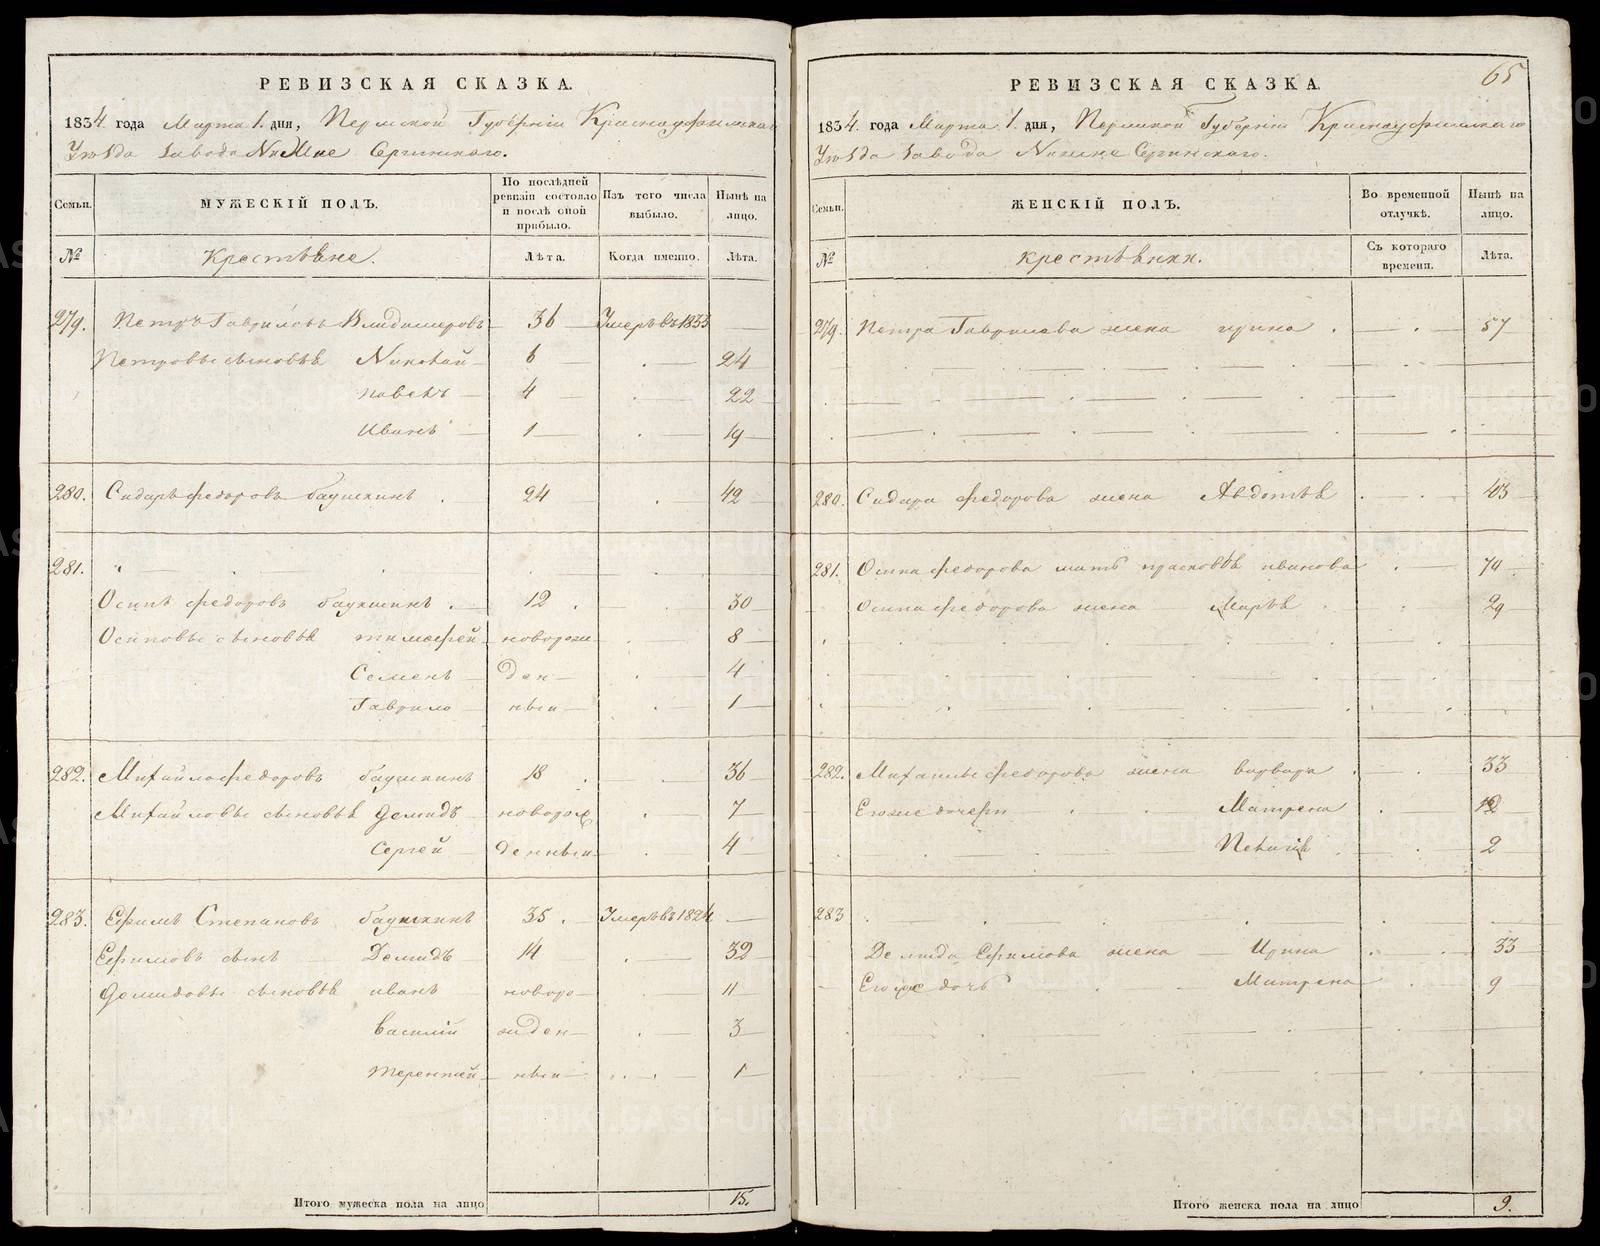 РЕВИЗСКАЯ СКАЗКА.
1834. года Марта 1. дня, Пермской Губерніи Красноуфимскаго
Уѣзда Завода Нижне Сергинскаго.
Семьи.
МУЖЕСКІЙ ПОЛЪ.
По послѣдней ревизіи состояло и послѣ оной прибыло.
Изъ того числа выбыло.
Нынѣ на лицо.
№
Крестьяне.
Лѣта.
Когда именно.
Лѣта.
279. Петръ Гавриловъ Владимеровъ 36 Умеръ въ 1833
Петровы сыновья Николай 6 24
павелъ 4 22
Иванъ 1 19
280. Сидаръ федоровъ баушкинъ 24 42
281.
Осипъ федоровъ баушкинъ 12 30
Осиповы сыновья тимофей новорож 8
Семенъ ден 4
Гаврило ныи 1
282. Михайло федоровъ баушкинъ 18 36
Михайловы сыновья демидъ новорож 7
Сергей денныи 4
283. Ефимъ Степановъ баушкинъ 35 Умеръ въ 1824
Ефимовъ сынъ Демидъ 14 32
демидовы сыновья иванъ новоро 11
василій жден 3
терентей ныи 1
Итого мужеска пола на лицо 15.
65
РЕВИЗСКАЯ СКАЗКА.
1834. года Марта 1. дня, Пермской Губерніи Красноуфимскаго
Уѣзда Завода Нижне Сергинскаго.
Семьи.
ЖЕНСКІЙ ПОЛЪ.
Во временной отлучкѣ.
Нынѣ на лицо.
№
крестьянки.
Съ котораго времени.
Лѣта.
279. Петра Гаврилова жена ирина 57
280. Сидара федорова жена Авдотья 43
281. Осипа федорова мать прасковья иванова 70
Осипа федорова жена Марья 29
282. Михаилы федорова жена варвара 33
Егоже дочери Матрена
Пелагія 2
283
Демида Ефимова жена Ирина 33
Егоже дочь Матрена 9
Итого женска пола на лицо 9.
METRIKI.GASO-URAL.RU